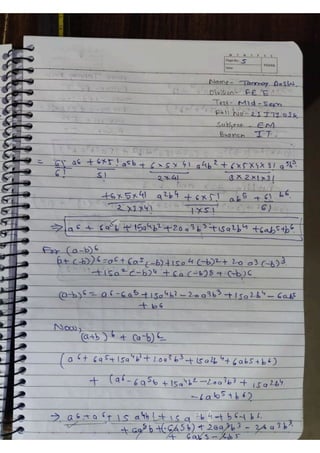 Page No. 5
Date
Name- Tanmay Joshi
Division- FE E
Test- Mid-Sem
Subject- EM
Branch IT.
= 6!/6! a6 + 6x5!/5! a5b + 6x5x4!/2x4! a4b2 + 6x5x4x3!/3x2x1x3! a3b3
+ 6x5x4!/2x1x4! a2b4 + 6x5!/1x5! ab5 + 6!/6! b6
⇒ a6 + 6a5b + 15a4b2 + 20a3b3 + 15a2b4 + 6ab5 + b6
For (a-b)6
+ 15a2(-b)4 + 6a(-b)5 + (-b)6
(a-b)6 = a6 - 6a5b + 15a4b2 - 20a3b3 + 15a2b4 - 6ab5
+ b6
Now,
(a+b)6 + (a-b)6 =
(a6 + 6a5b + 15a4b2 + 20a3b3 + 15a2b4 + 6ab5 + b6)
+ (a6 - 6a5b + 15a4b2 - 20a3b3 + 15a2b4
- 6ab5 + b6)
⇒ a6 + a6 + 15a4b2 + 15a2b4 + b6 + b6
+ 6a5b + (-6a5b) + 20a3b3 - 20a3b3
+ 6ab5 - 6ab5